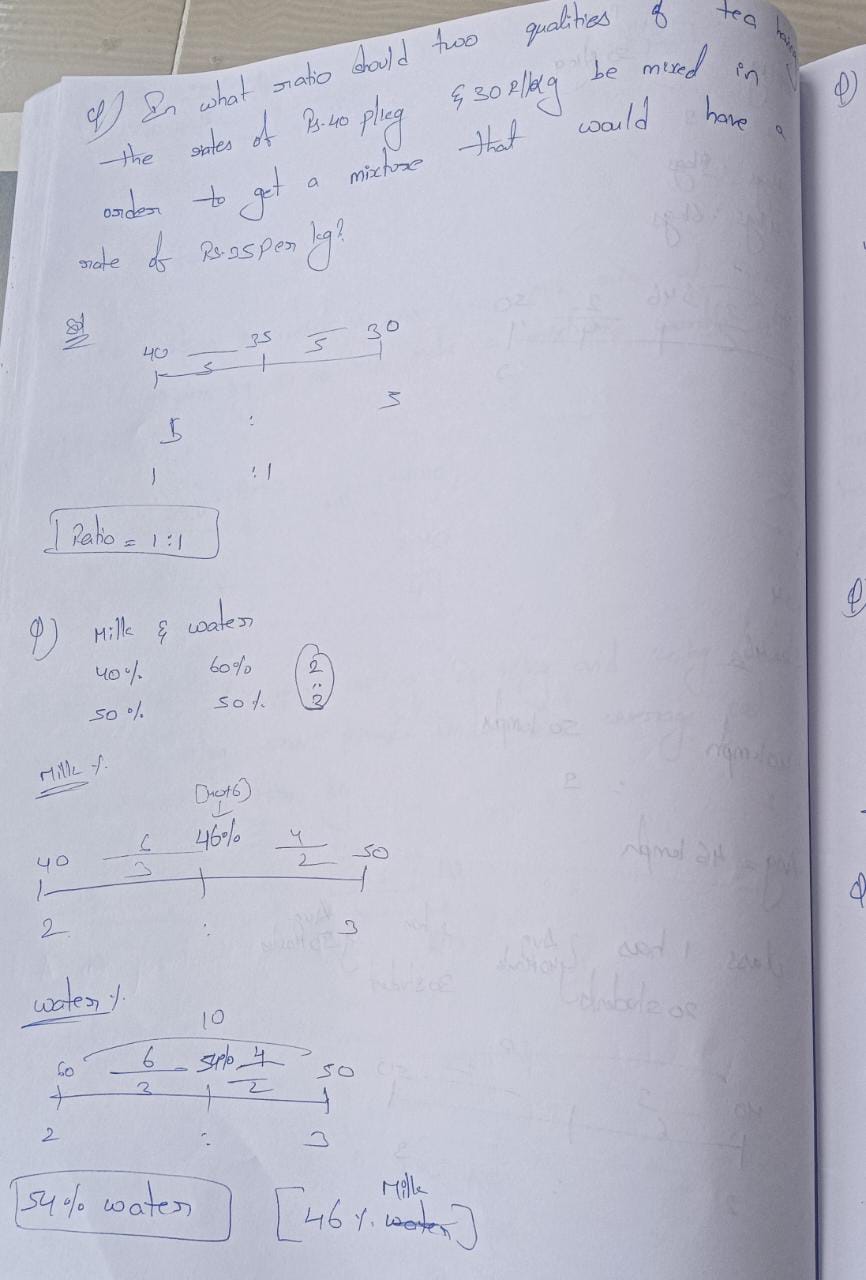 Q) In what ratio should two qualities of tea having
the rates of Rs.40 p/kg & 30 R/kg be mixed in
order to get a mixture that would have a
rate of Rs.35 per kg?
Sol
40 5 35 5 30
5 : 5
1 : 1
Ratio = 1:1
Q) Milk & water
40% 60% 2
:
50% 50% 3
Milk %
[40+6]
40 6/3 46% 4/2 50
2 : 3
water %
10
60 6/3 54% 4/2 50
2 : 3
54% water [46% water Milk]